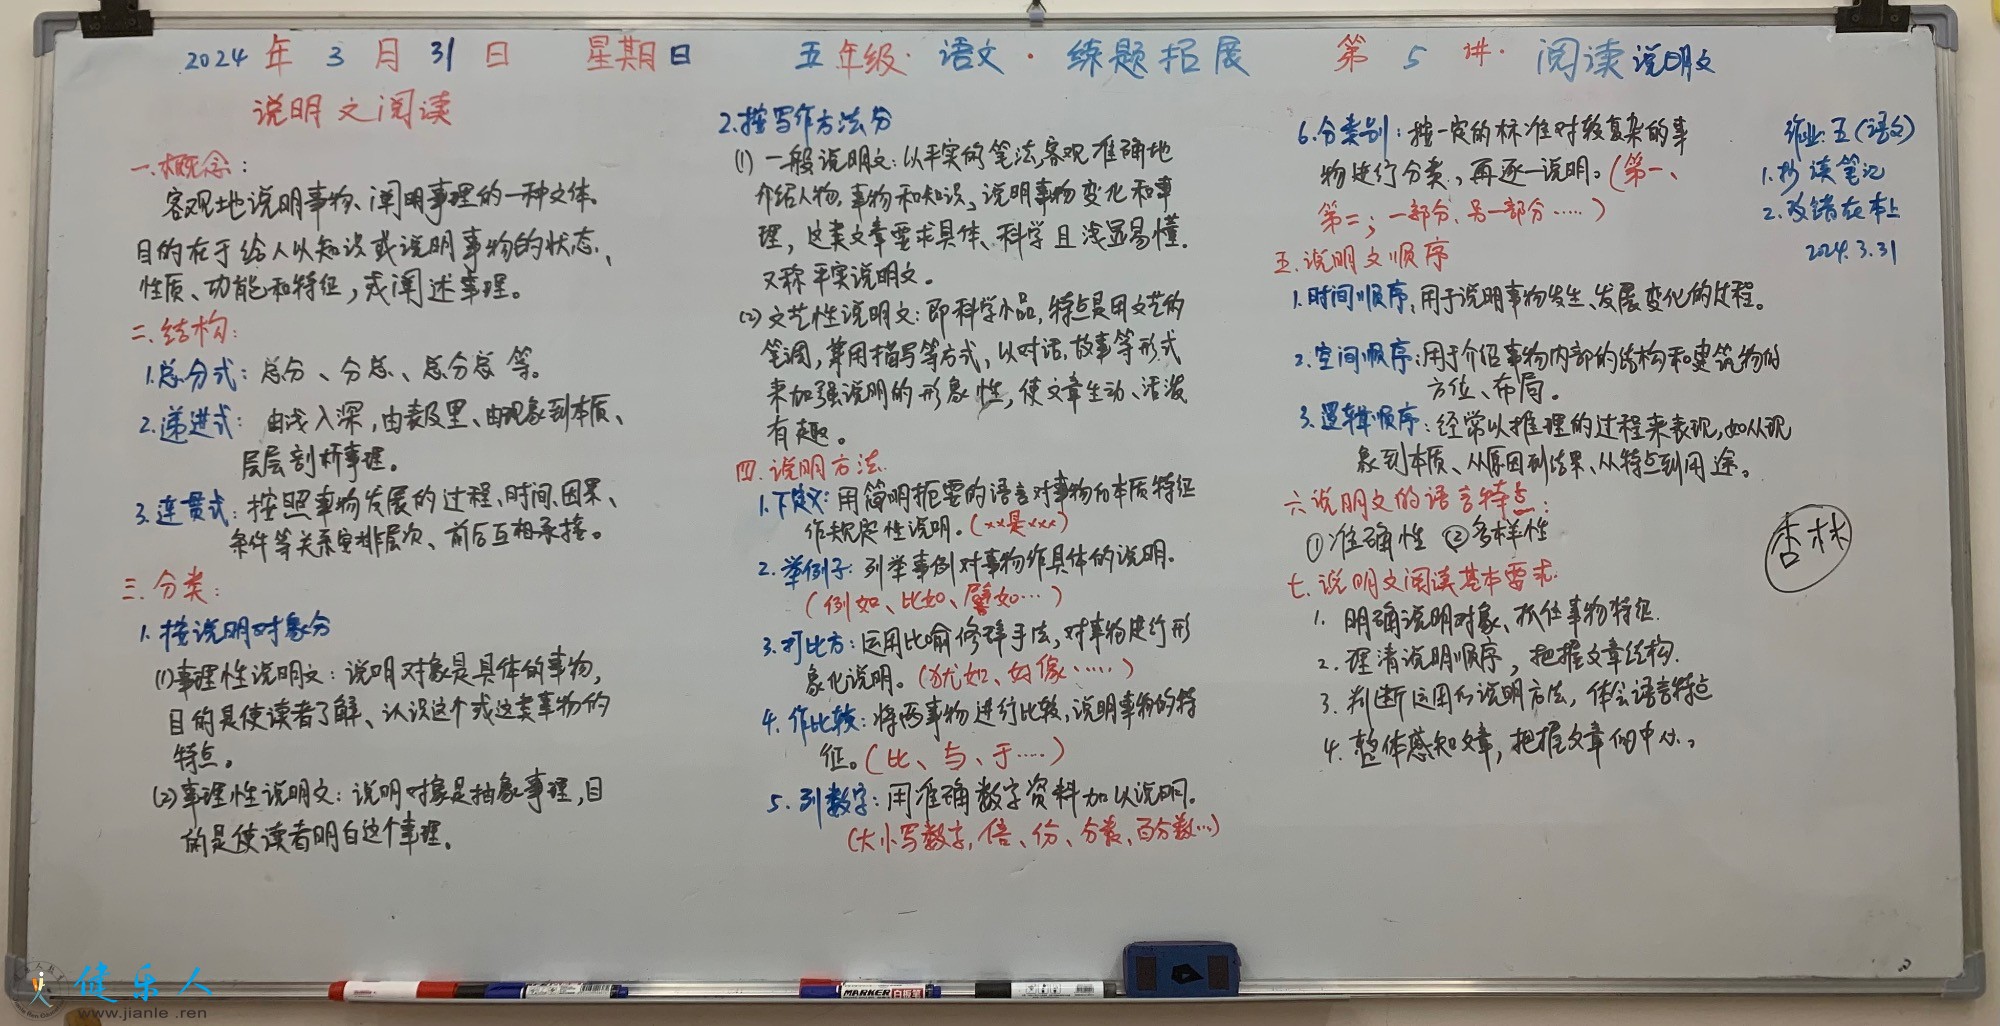 2024年3月31日 星期日 五年级·语文·练题拓展 第5讲·阅读说明文
说明文阅读
一.概念：
客观地说明事物、阐明事理的一种文体。
目的在于给人以知识或说明事物的状态、
性质、功能和特征，或阐述事理。
二.结构：
1.总分式：总分、分总、总分总等。
2.递进式：由浅入深，由表及里、由现象到本质、
层层剖析事理。
3.连贯式：按照事物发展的过程、时间、因果、
条件等关系安排层次、前后互相承接。
三.分类：
1.按说明对象分
(1)事理性说明文：说明对象是具体的事物，
目的是使读者了解、认识这个或这类事物的
特点。
(2)事理性说明文：说明对象是抽象事理，目
的是使读者明白这个事理。
2.按写作方法分
(1)一般说明文：以平实的笔法，客观准确地
介绍人物，事物和知识，说明事物变化和事
理，这类文章要求具体、科学且浅显易懂.
又称平实说明文。
(2)文艺性说明文：即科学小品，特点是用文艺的
笔调，兼用描写等方式，以对话，故事等形式
来加强说明的形象性，使文章生动、活泼
有趣。
四.说明方法.
1.下定义：用简明扼要的语言对事物的本质特征
作规定性说明。(xx是xxx)
2.举例子：列举事例对事物作具体的说明。
(例如、比如、譬如…)
3.打比方：运用比喻修辞手法，对事物进行形
象化说明。(犹如、好像……)
4.作比较：将两事物进行比较，说明事物的特
征。(比、与、于……)
5.列数字：用准确数字资料加以说明。
(大小写数字，倍、份、分数、百分数…)
6.分类别：按一定的标准对较复杂的事
物进行分类，再逐一说明。(第一、
第二；一部分、另一部分……)
五.说明文顺序
1.时间顺序：用于说明事物发生、发展变化的过程。
2.空间顺序：用于介绍事物内部的结构和建筑物的
方位、布局。
3.逻辑顺序：经常以推理的过程来表现，如从现
象到本质、从原因到结果、从特点到用途。
六.说明文的语言特点：
①准确性 ②多样性
七.说明文阅读基本要求.
1.明确说明对象、抓住事物特征.
2.理清说明顺序，把握文章结构.
3.判断运用的说明方法，体会语言特点
4.整体感知文章，把握文章的中心。
作业：五(语文)
1.抄读笔记
2.改错在本上
2024.3.31
杏林
MARKER 白板笔
健乐人
www.jianle.ren